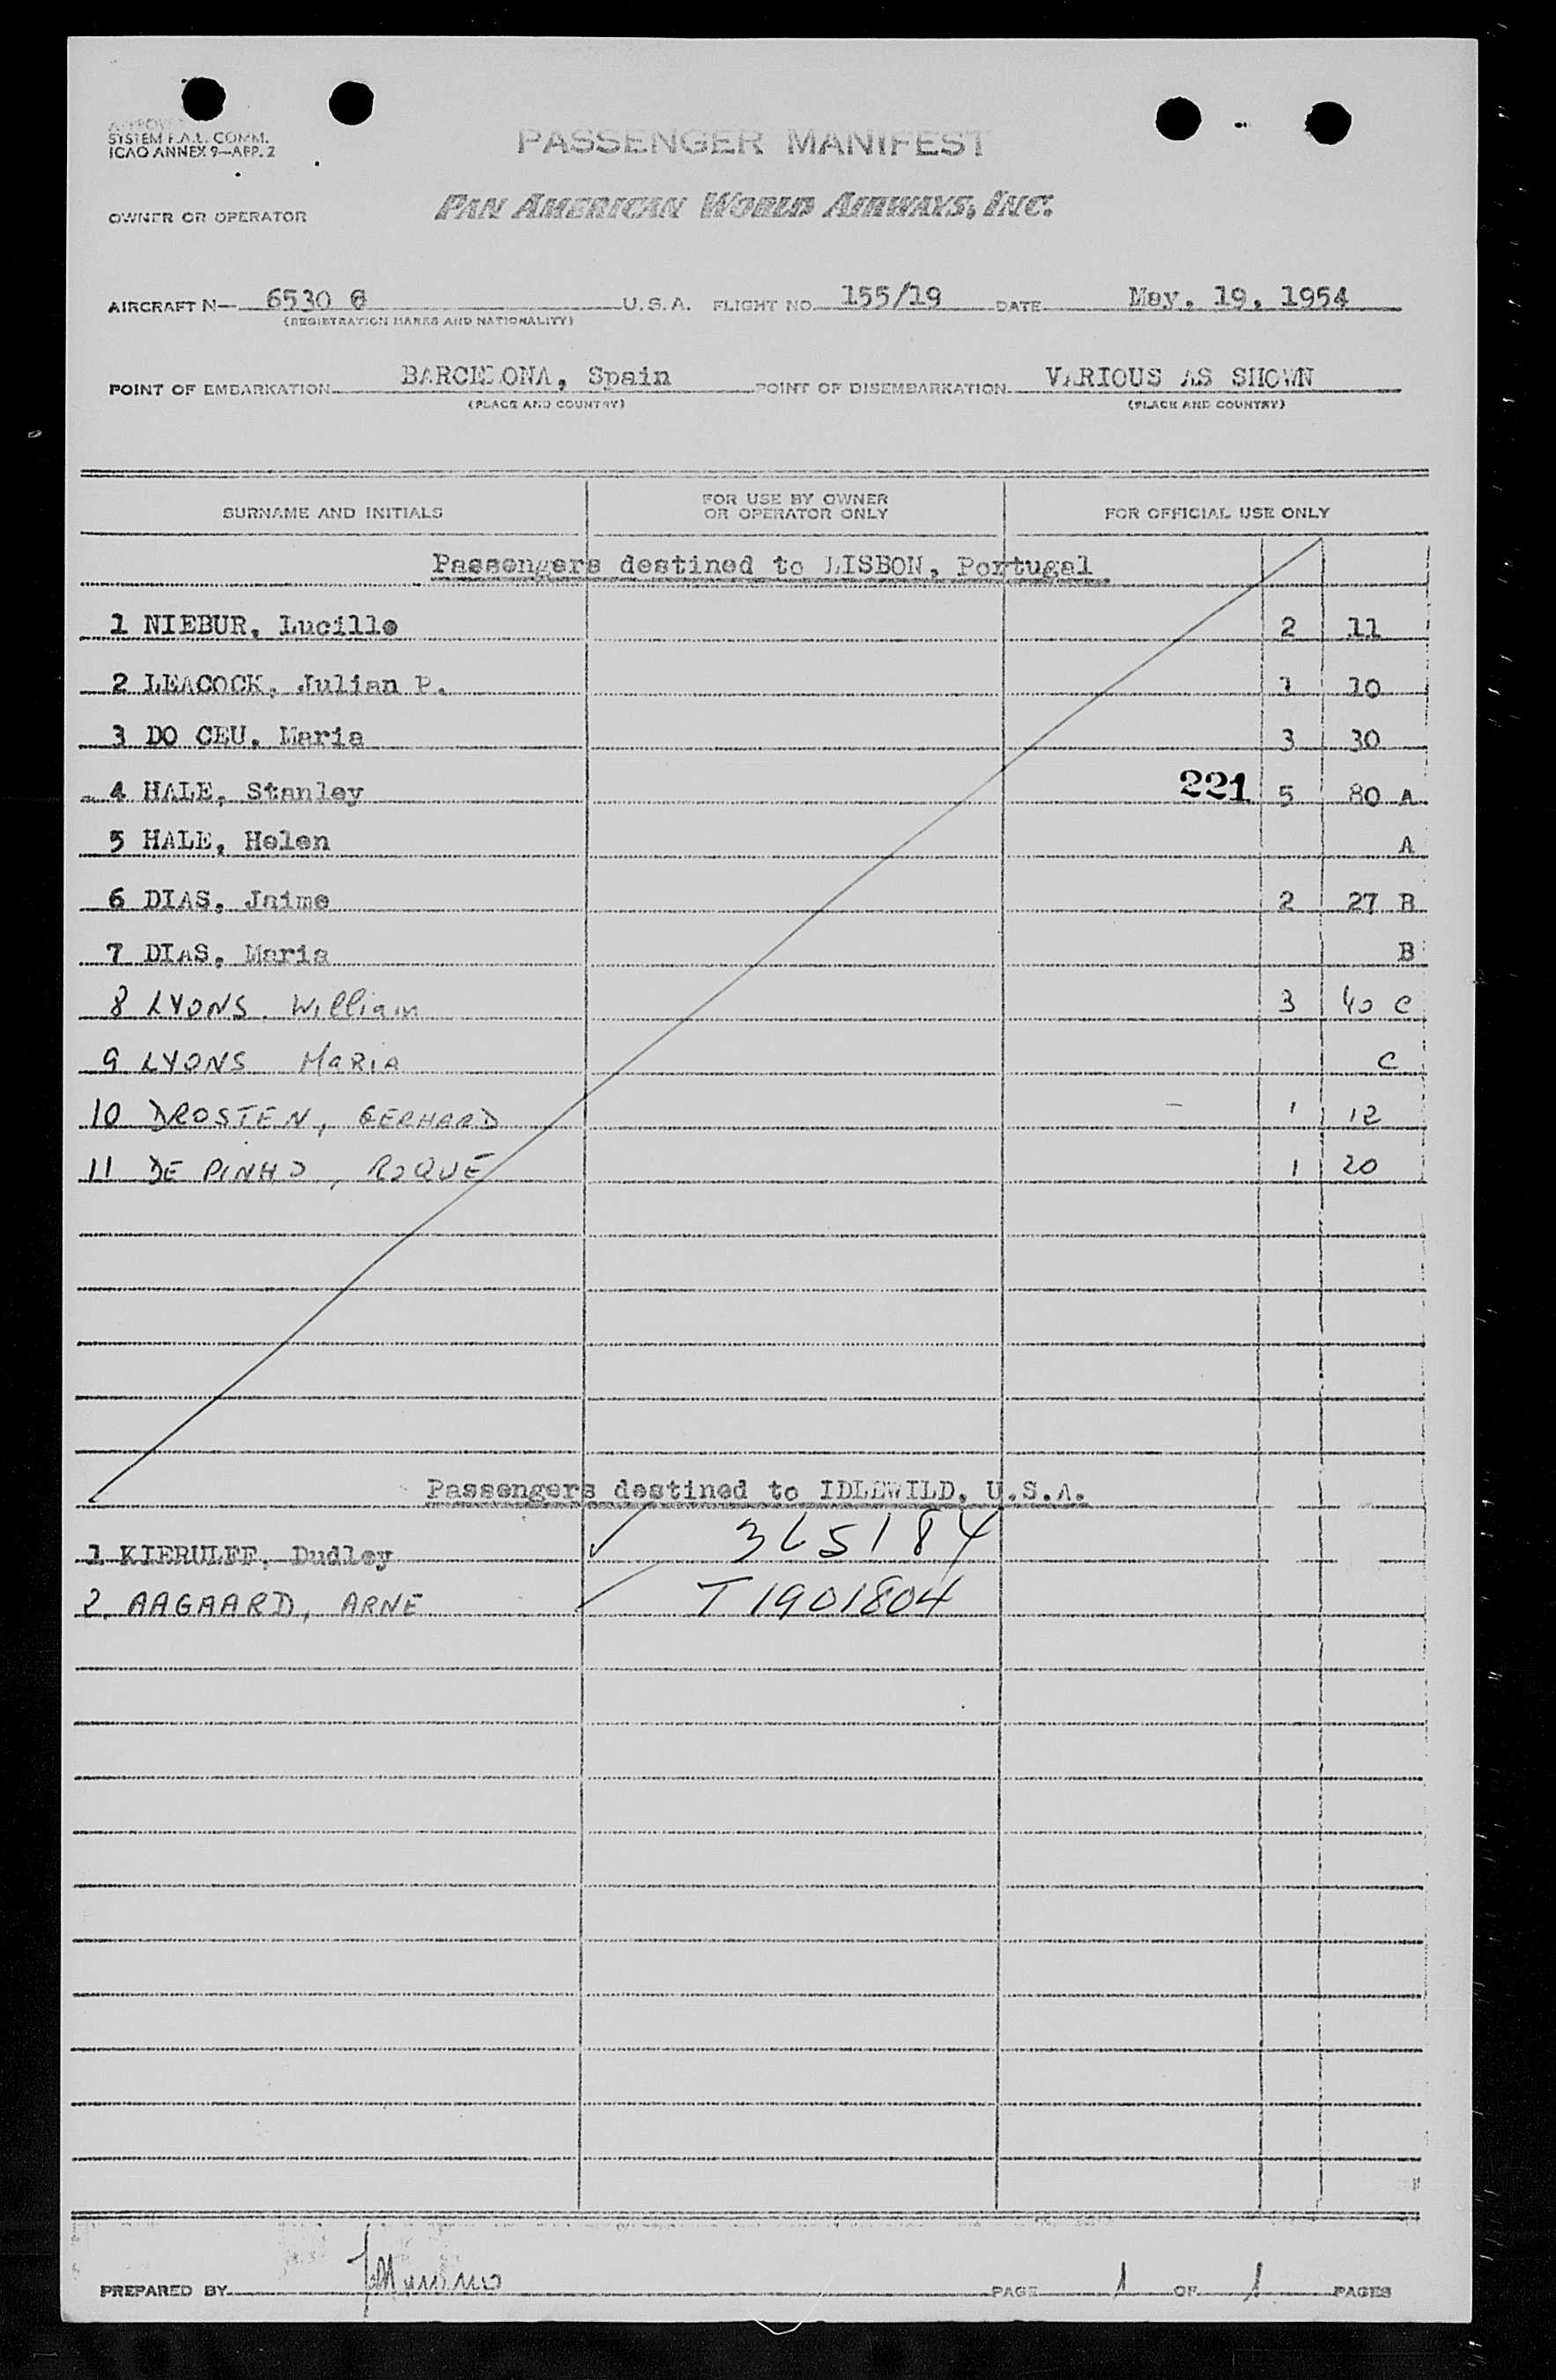 SYSTEM F.A.L. COMM.
ICAO ANNEX 9—APP. 2
PASSENGER MANIFEST
OWNER OR OPERATOR PAN AMERICAN WORLD AIRWAYS, INC.
AIRCRAFT N— 6530 U.S.A. FLIGHT NO. 155/19 DATE May. 19, 1954
(REGISTRATION MARKS AND NATIONALITY)
POINT OF EMBARKATION BARCELONA, Spain POINT OF DISEMBARKATION VARIOUS AS SHOWN
(PLACE AND COUNTRY) (PLACE AND COUNTRY)
SURNAME AND INITIALS FOR USE BY OWNER OR OPERATOR ONLY FOR OFFICIAL USE ONLY
Passengers destined to LISBON, Portugal
1 NIEBUR, Lucille 2 11
2 LEACOCK, Julian P. 1 10
3 DO CEU, Maria 3 30
4 HALE, Stanley 221 5 80 A
5 HALE, Helen A
6 DIAS, Jaime 2 27 B
7 DIAS, Maria B
8 LYONS, William 3 40 C
9 LYONS MARIA C
10 DROSTEN, GERHARD 1 12
11 DE PINHO, ROQUE 1 20
Passengers destined to IDLEWILD, U.S.A.
1 KIERULFF, Dudley ✓ 365184
2. AAGAARD, ARNE T 1901804
PREPARED BY PAGE 1 OF 1 PAGES